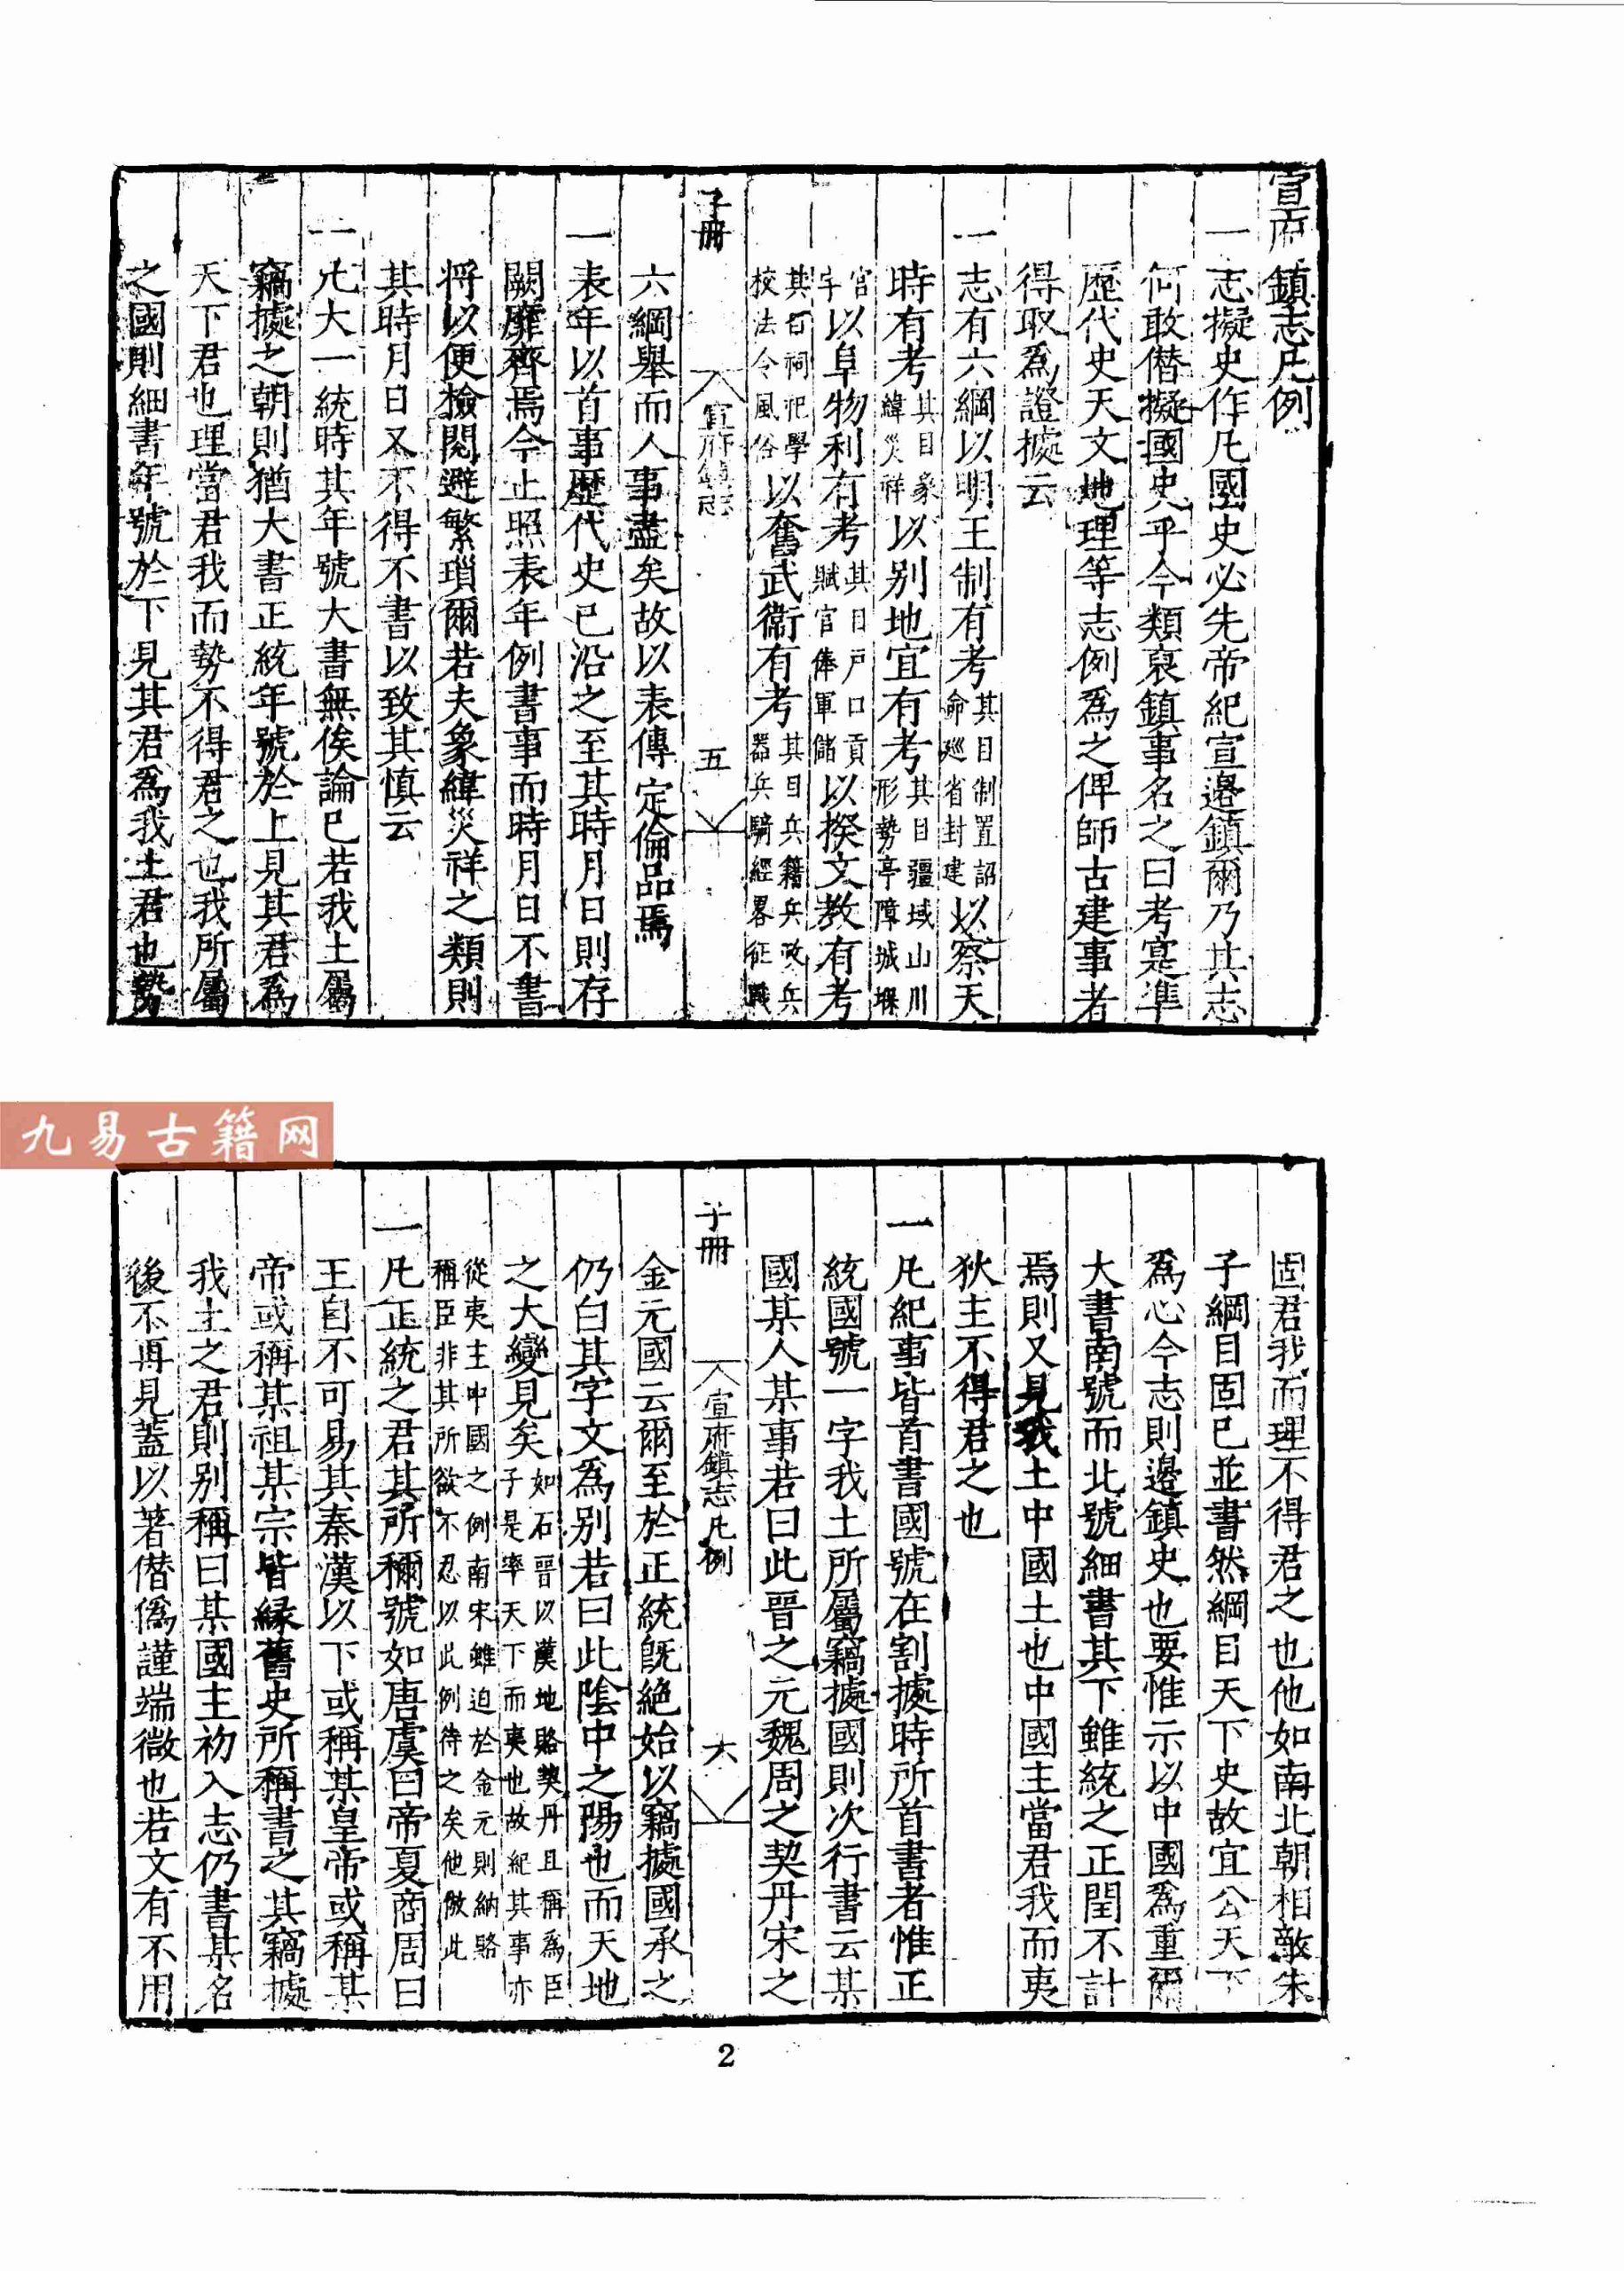 宣府鎮志凡例
一志擬史作凡國史必先帝紀宣邊鎮爾乃其志
何敢僭擬國史乎今類裒鎮事名之曰考寔準
歷代史天文地理等志例爲之俾師古建事者
得取爲證據云
一志有六綱以明王制有考其目制置詔命巡省封建以察天
時有考其目象緯災祥以别地宜有考其目疆域山川形勢亭障城堡
官宇以阜物利有考其目戶口貢賦官俸軍儲以揆文教有考
其目祠祀學校法令風俗以奮武衞有考其目兵籍兵政兵器兵騎經畧征戰
子冊
宣府鎮志
五
六綱舉而人事盡矣故以表傳定倫品焉
一表年以首事歷代史已沿之至其時月日則存
闕靡齊焉今止照表年例書事而時月日不書
将以便檢閱避繁瑣爾若夫象緯災祥之類則
其時月日又不得不書以致其慎云
一凡大一統時其年號大書無俟論已若我土屬
竊據之朝則猶大書正統年號於上見其君爲
天下君也理當君我而勢不得君之也我所屬
之國則細書年號於下見其君爲我土君也勢
固君我而理不得君之也他如南北朝相敵朱
子綱目固已並書然綱目天下史故宜公天下
爲心今志則邊鎮史也要惟示以中國爲重爾
大書南號而北號細書其下雖統之正閏不計
焉則又見我土中國土也中國主當君我而夷
狄主不得君之也
一凡紀事皆首書國號在割據時所首書者惟正
統國號一字我土所屬竊據國則次行書云某
國某人某事若曰此晉之元魏周之契丹宋之
子冊
宣府鎮志凡例
六
金元國云爾至於正統既絶始以竊據國承之
仍白其字文爲别若曰此陰中之陽也而天地
之大變見矣如石晉以漢地賂契丹且稱爲臣子是率天下而夷也故紀其事亦
從夷主中國之例南宋雖迫於金元則納賂稱臣非其所欲不忍以此例待之矣他倣此
一凡正統之君其所稱號如唐虞曰帝夏商周曰
王自不可易其秦漢以下或稱某皇帝或稱某
帝或稱某祖某宗皆緣舊史所稱書之其竊據
我土之君則别稱曰某國主初入志仍書某名
後不再見蓋以著僭僞謹端微也若文有不用
九易古籍网
2